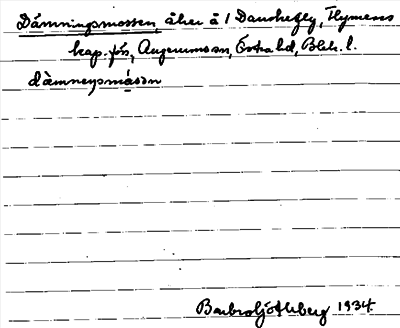 Dämningsmossen, åker å 1 Danskefly, Flymens
kap.förs, Augerums sn, Östra hd, Blek. l.
dämneŋsmåsən
Barbro Ljothberg 1934.